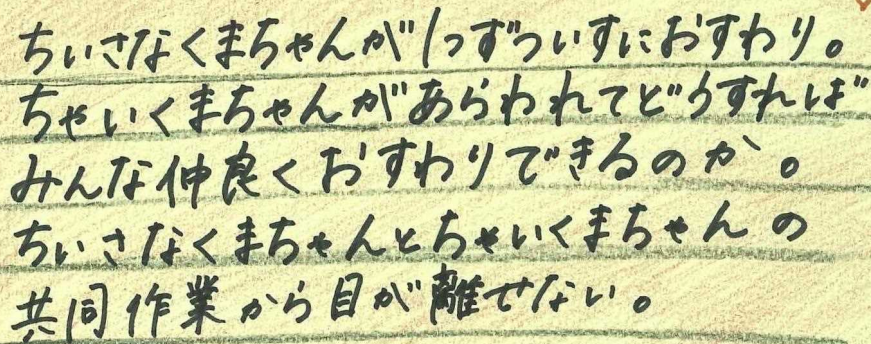 ちいさなくまちゃんが1つずついすにおすわり。
ちゃいくまちゃんがあらわれてどうすれば
みんな仲良くおすわりできるのか。
ちいさなくまちゃんとちゃいくまちゃんの
共同作業から目が離せない。